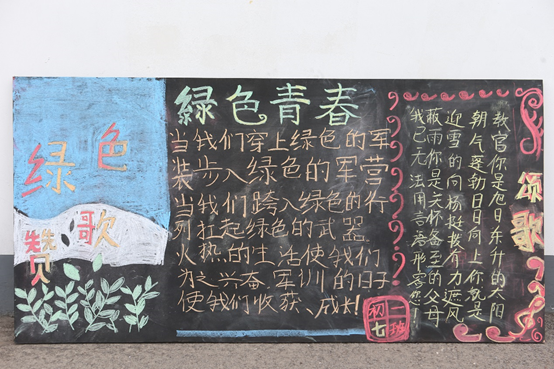 绿色
赞歌
綠色青春
当我们穿上绿色的军
装步入绿色的军营
当我们跨入绿色的行
列扛起绿色的武器
火热的生活使我们
为之兴奋,军训的日子
使我们收获、成长!
初一
七班
颂歌
教官你是旭日东升的太阳
朝气蓬勃日日向上你就是
迎雪的向杨挺拔有力遮风
蔽雨你是关怀备至的父母
我已无法用言语形容您!